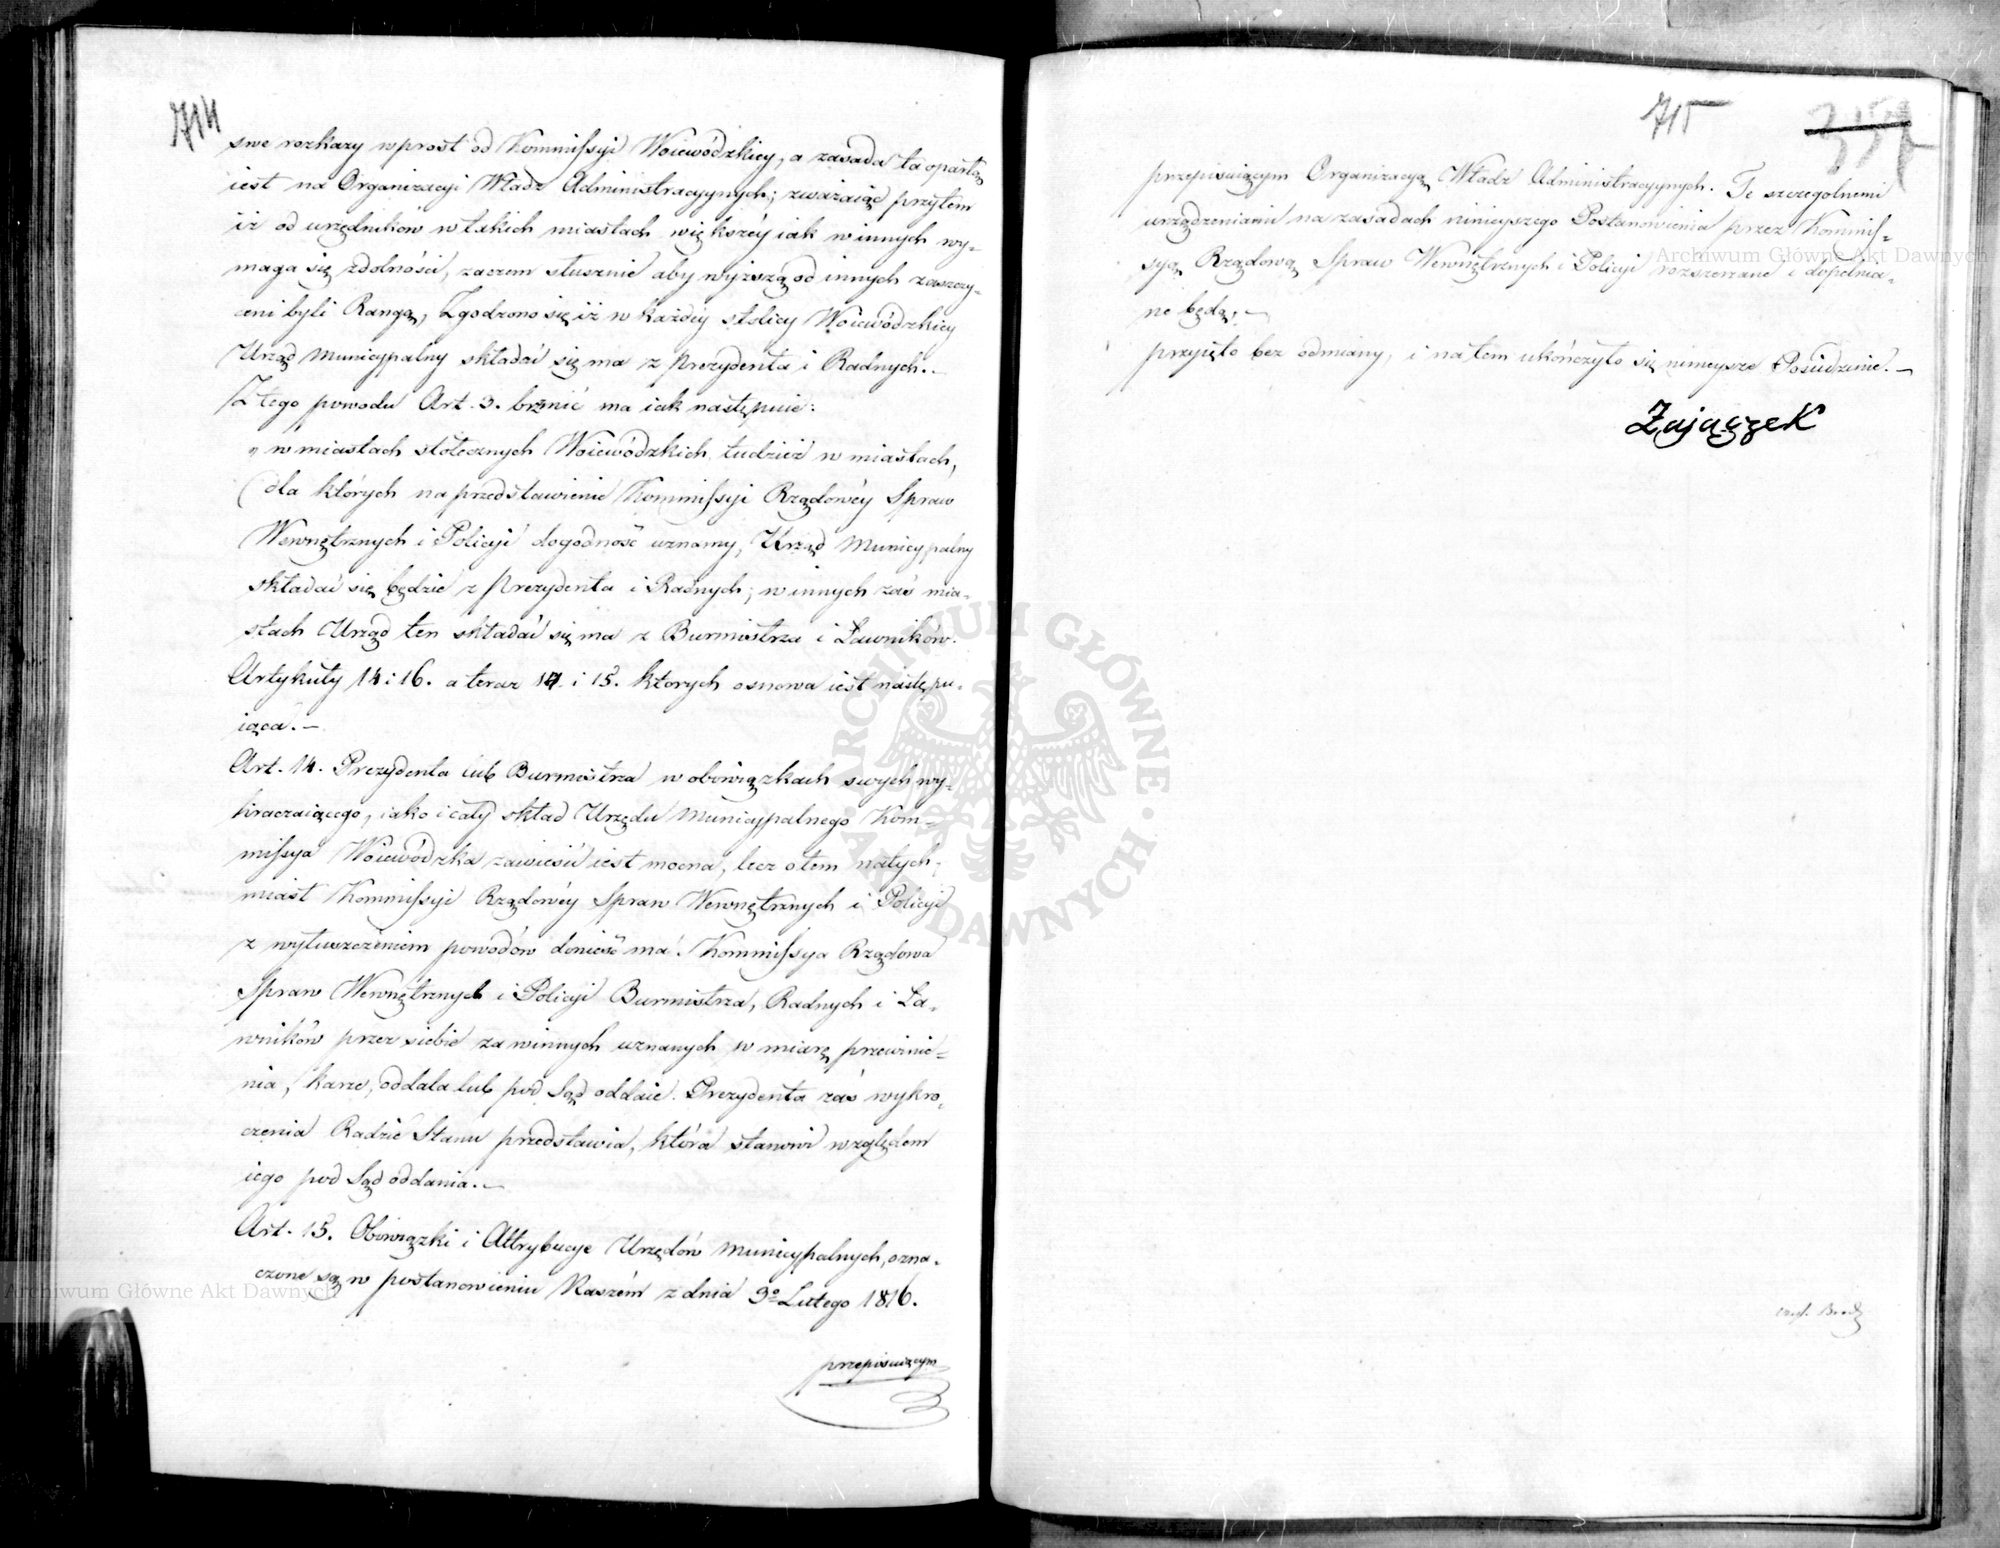 714
swe rozkazy wprost od Kommissyi Woiewódzkiey, a zasada ta opartą
iest na Organizacyi Władz Administracyynych; zważaiąc przytem
iż od urzędników w takich miastach większéy iak w innych wy-
maga się zdolności, zaczem słusznie aby wyższą od innych zaszczy-
ceni byli Rangą, Zgodzono się iż w każdéy stolicy Woiewódzkiey
Urząd Municypalny składać się ma z Prezydenta i Radnych.-
Z tego powodu Art. 3. brzmić ma iak następuie:
„ w miastach stołecznych Woiewódzkich tudzież w miastach,
(dla których na przedstawienie Kommissyi Rządowéy Spraw
Wewnętrznych i Policyi dogodność uznamy, Urząd Municypalny
składać się będzie z Prezydenta i Radnych; w innych zaś mia-
stach Urząd ten składać się ma z Burmistrza i Ławników.
Artykuły 14 i 16. a teraz 14 i 15. ktorych osnowa iest następu-
iąca.-
Art. 14. Prezydenta lub Burmistrza w obowiązkach swych wy-
kraczaiącego, iako i cały skład Urzędu Municypalnego Kom-
missya Woiewódzka zawiesić iest mocna, lecz o tem natych-
miast Kommissyi Rządowéy Spraw Wewnętrznych i Policyi
z wyłuszczeniem powodów donieść ma. Kommissya Rządowa
Spraw Wewnętrznych i Policyi Burmistrza, Radnych i Ła-
wników przez siebie za winnych uznanych w miarę przewinie-
nia, karze, oddala lub pod Sąd oddaie. Prezydenta zaś wykro-
czenia Radzie Stanu przedstawia, która stanowi względem
iego pod Sąd oddania.-
Art. 15. Obowiązki i Attrybucye Urzędów Municypalnych, ozna-
czone są w postanowieniu Naszém z dnia 3º Lutego 1816.
przepisuiącym
715
357
przepisuiącym Organizacyą Władz Administracyynych. Te szczegolnemi
urządzeniami na zasadach ninieyszego Postanowienia przez Kommis-
syą Rządową Spraw Wewnętrznych i Policyi rozszerzane i dopełnia-
ne będą.-
przyięto bez odmiany, i na tem ukończyło się ninieysze Posiedzenie.-
Zajączek
Archiwum Główne Akt Dawnych
Archiwum Główne Akt Dawnych
ARCHIWUM GŁÓWNE AKT DAWNYCH